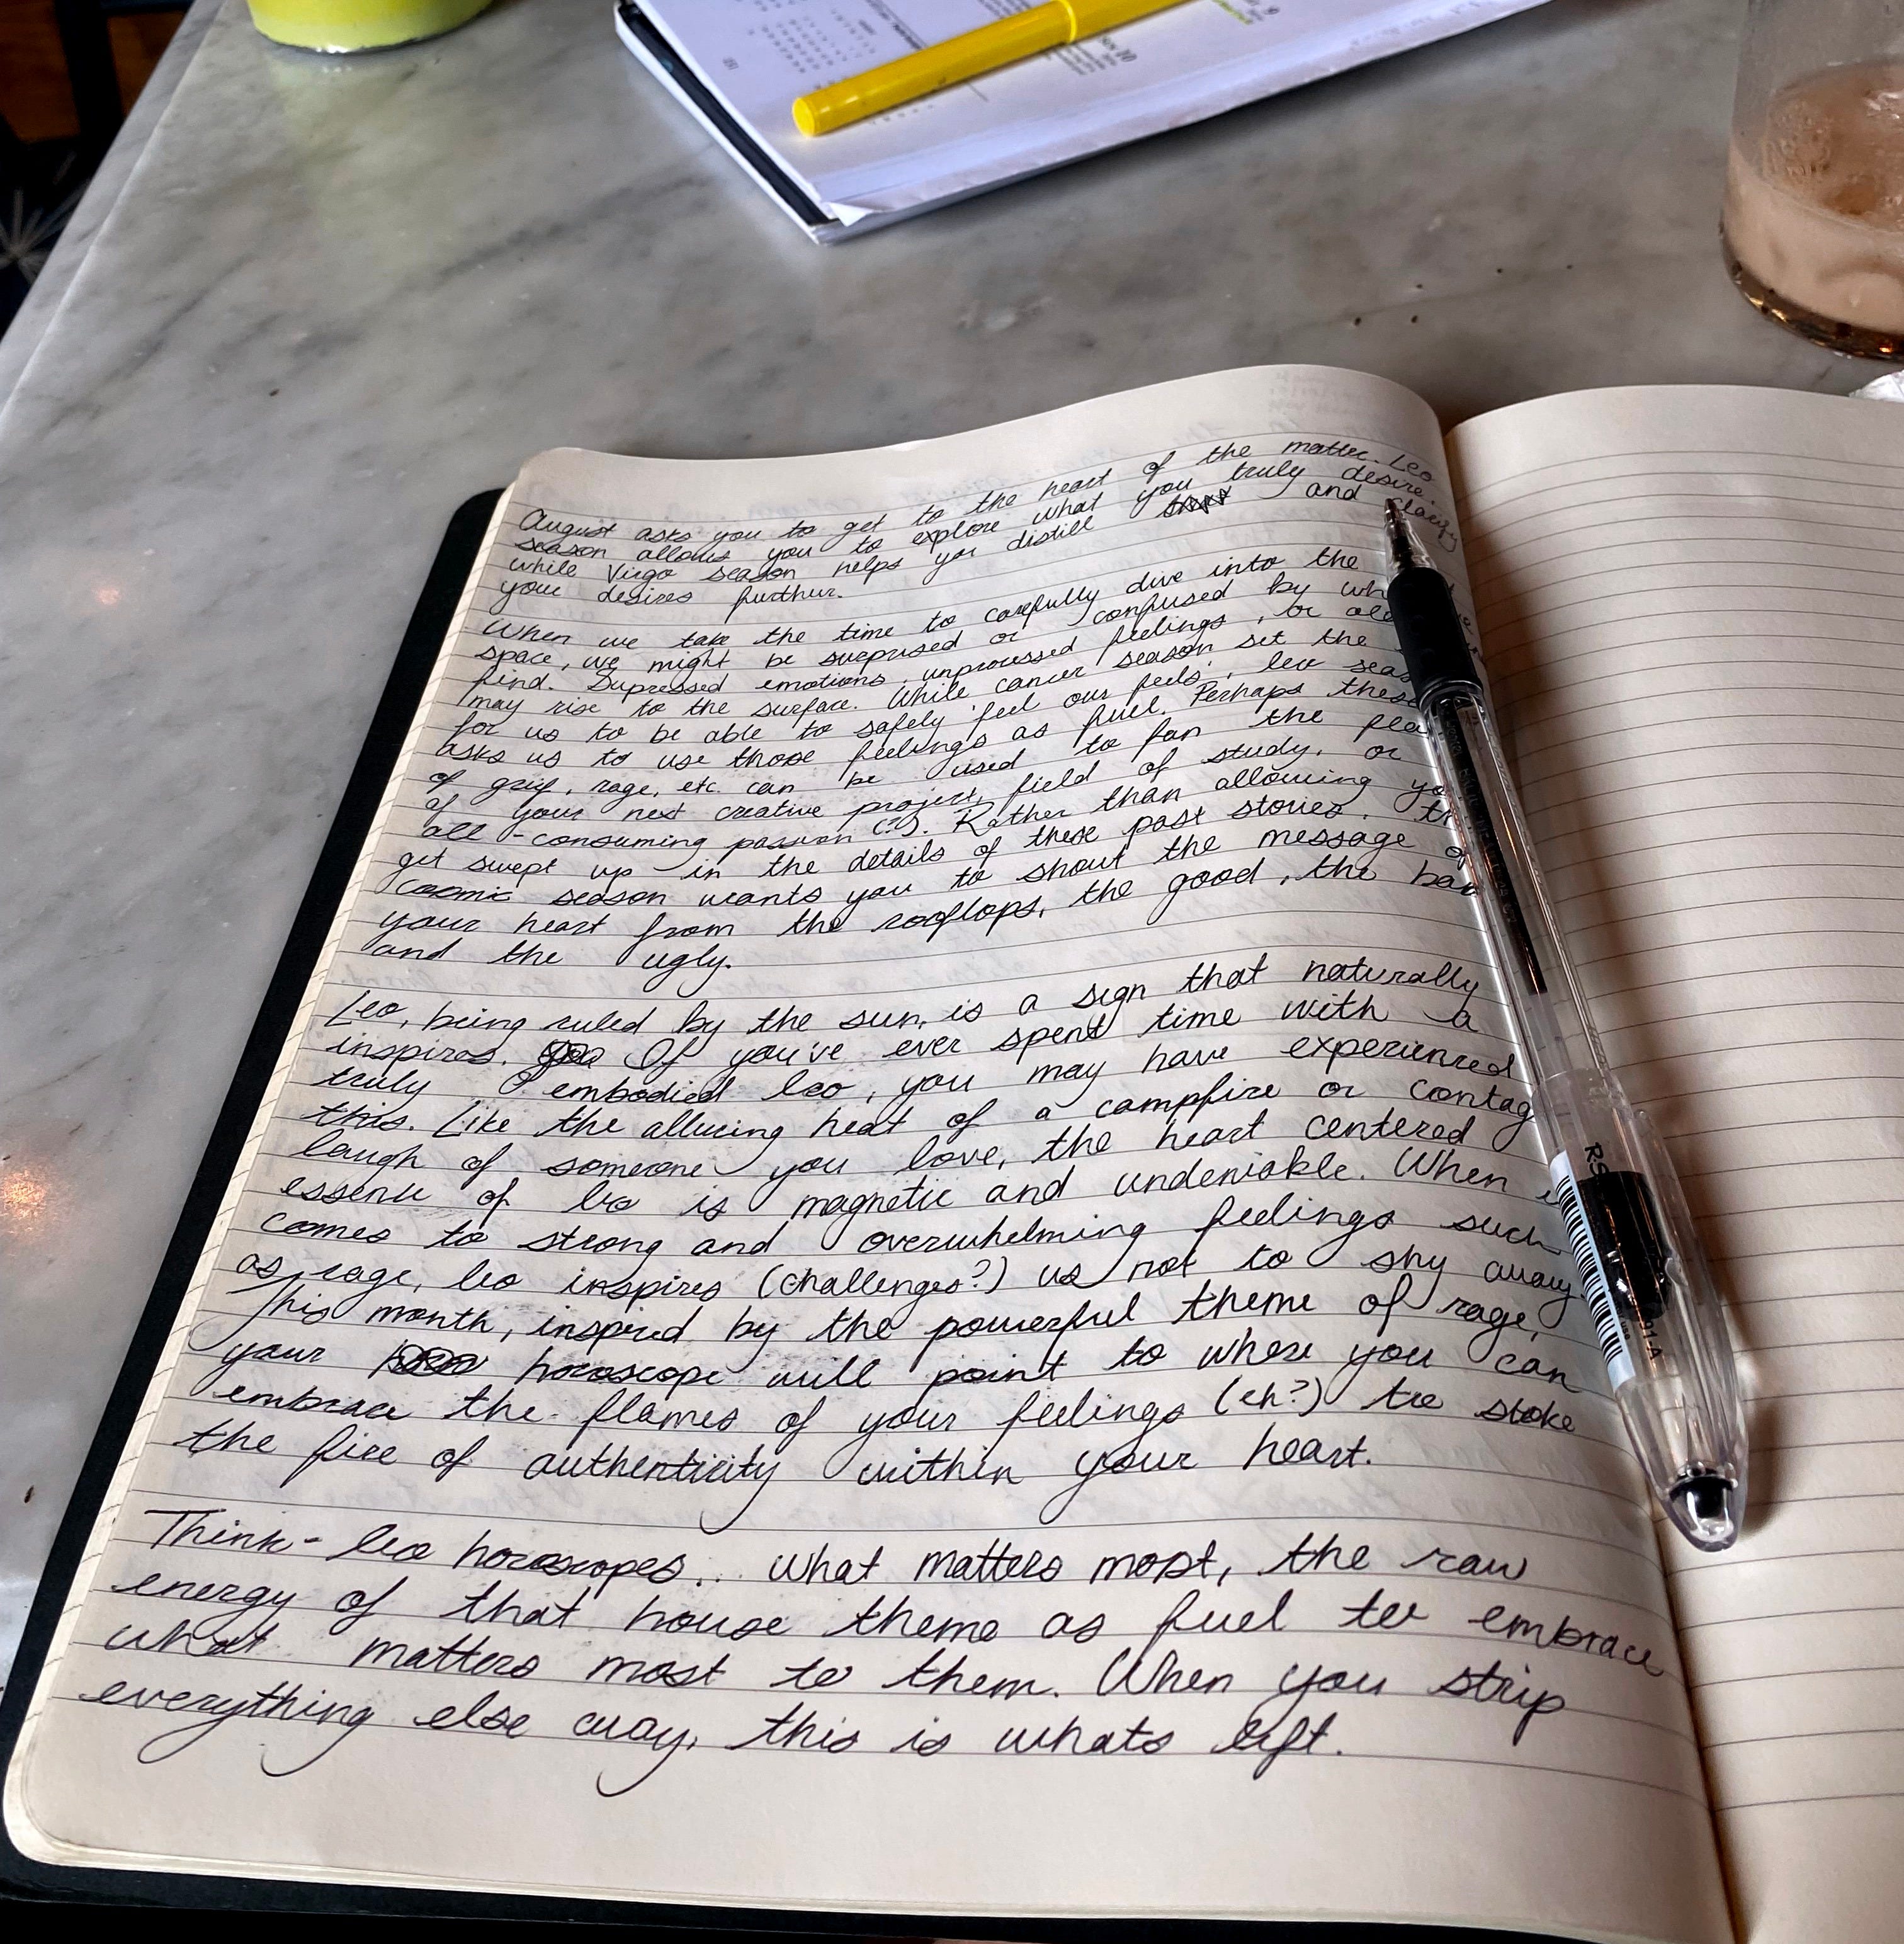 August asks you to get to the heart of the matter. Leo
season allows you to explore what you truly desire.
while Virgo season helps you distill and clarify
your desires further.
When we take the time to carefully dive into the
space, we might be surprised or confused by
find. Supressed emotions, unprocessed feelings, or old
may rise to the surface. While cancer season set the
for us to be able to safely feel our feels, leo
asks us to use those feelings as fuel. Perhaps these
of grief, rage, etc. can be used to fan the
of your next creative project, field of study, or
all-consuming passion (?). Rather than allowing
get swept up in the details of these past stories,
cosmic season wants you to shout the message of
your heart from the rooftops, the good, the bad
and the ugly.
Leo, being ruled by the sun, is a sign that naturally
inspires. If you've ever spent time with a
truly embodied leo, you may have experienced
this. Like the alluring heat of a campfire or
laugh of someone you love, the heart centered
essence of leo is magnetic and undeniable. When
comes to strong and overwhelming feelings such
as rage, leo inspires (challenges?) us not to shy away
This month, inspired by the powerful theme of rage,
your horoscope will point to where you can
embrace the flames of your feelings (eh?) to stoke
the fire of authenticity within your heart.
Think - leo horoscopes... what matters most, the raw
energy of that house theme as fuel to embrace
what matters most to them. When you strip
everything else away, this is whats left.